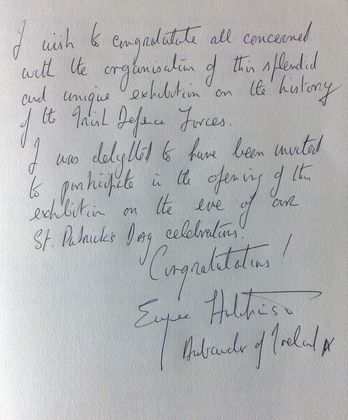 I wish to congratulate all concerned
with the organisation of this splendid
and unique exhibition on the history
of the Irish Defence Forces.
I was delighted to have been invited
to participate in the opening of the
exhibition on the eve of our
St. Patrick's Day celebrations.
Congratulations!
Hutchinson
Ambassador of Ireland